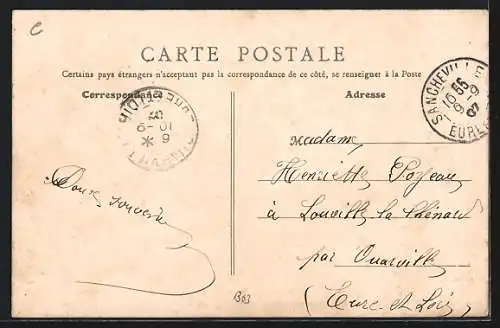 c
CARTE POSTALE
Certains pays étrangers n'acceptant pas la correspondance de ce côté, se renseigner à la Poste
Correspondance
Adresse
SANCHEVILLE
16 55
9-9
07
EURE
10-9
Madame
Henriette
à Louville la Chénard
par Ouarville
(Eure et Loir
Doux souvenir
1303